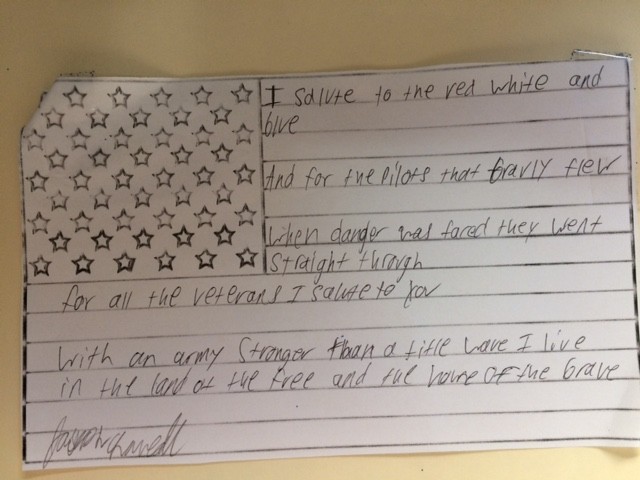 I salute to the red white and
blue
And for the Pilots that bravly flew
When danger was faced they went
straight through
for all the veterans I salute to you
With an army Stronger than a title wave I live
in the land of the free and the home of the brave